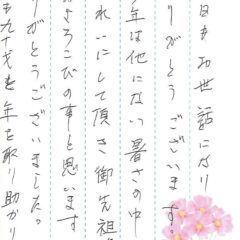 日もお世話になり
りがとうございます。
年は他にない暑さの中
れいにして頂き御先祖
よろこびの事と思います
りがとうございました。
も九十才を年を取り助かり